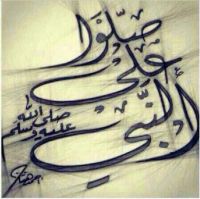 صَلُّوا
عَلَى
النَّبِيِّ
صلى الله
عليه وسلم